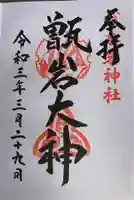 奉拝
神社
甑岩大神
令和三年三月二十九日